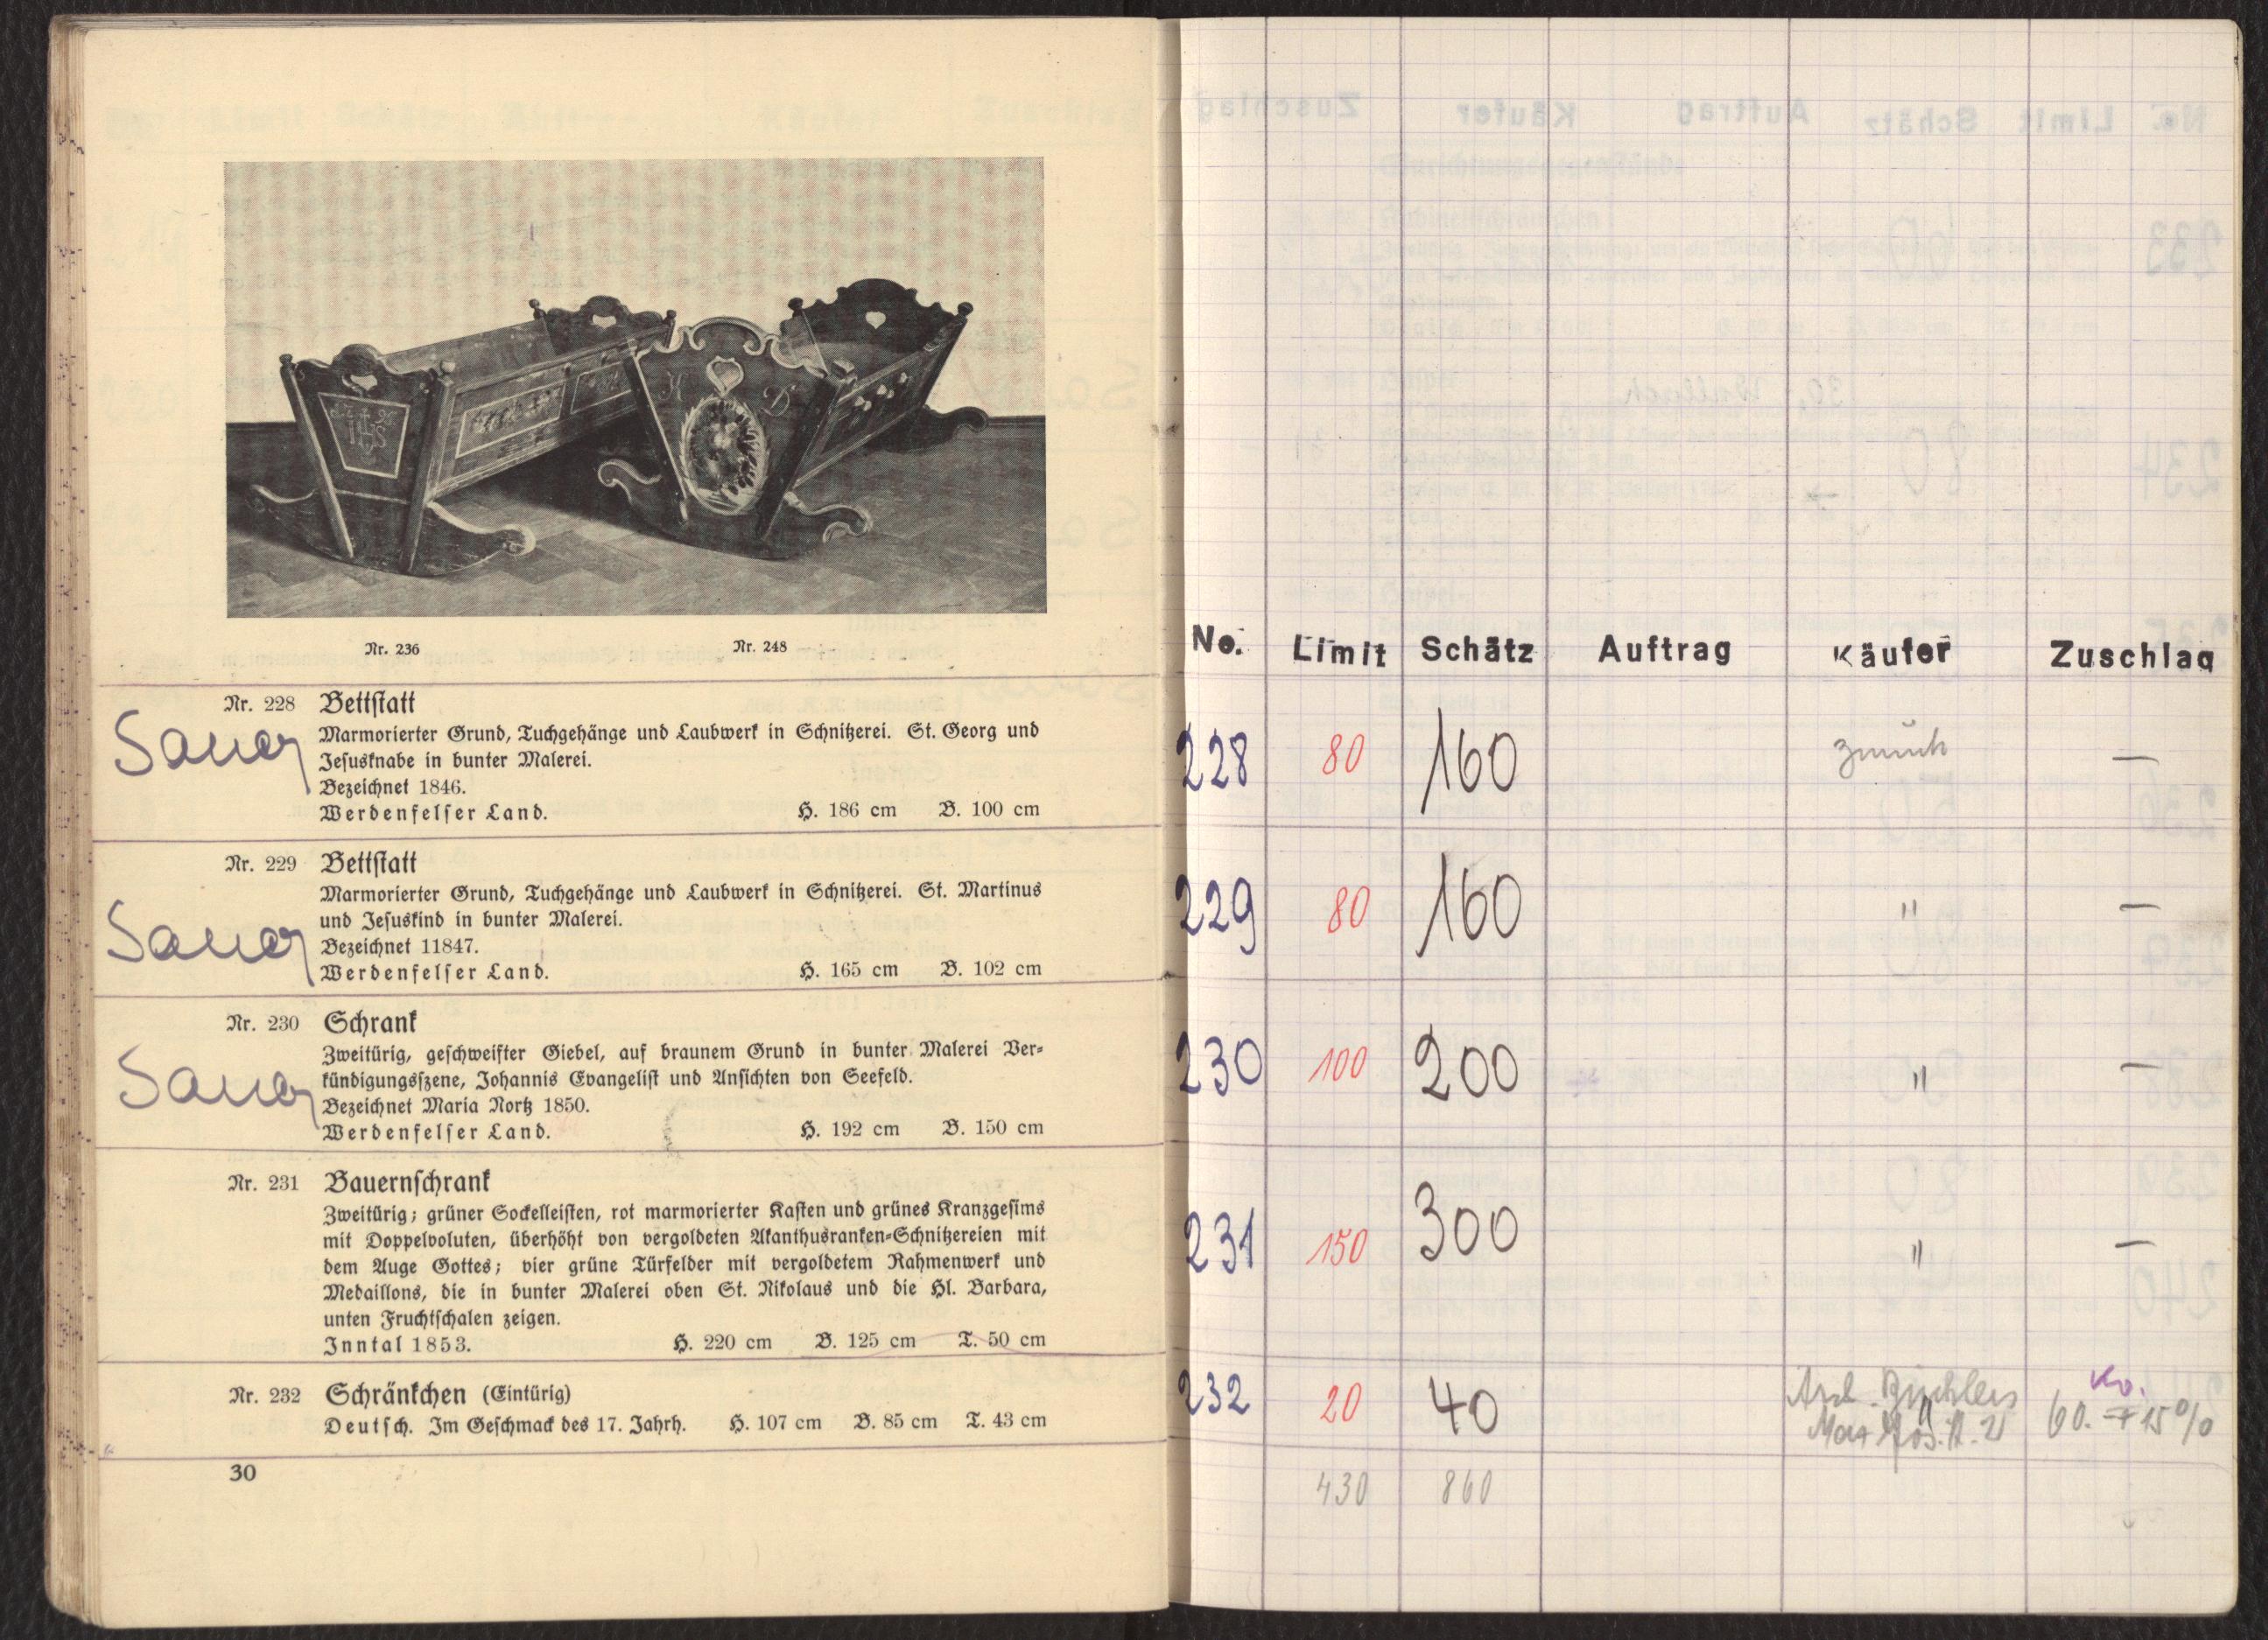 Nr. 236 Nr. 248
Nr. 228 Bettstatt
Marmorierter Grund, Tuchgehänge und Laubwerk in Schnitzerei. St. Georg und
Jesusknabe in bunter Malerei.
Bezeichnet 1846.
Werdenfelser Land. H. 186 cm B. 100 cm
Nr. 229 Bettstatt
Marmorierter Grund, Tuchgehänge und Laubwerk in Schnitzerei. St. Martinus
und Jesuskind in bunter Malerei.
Bezeichnet 11847.
Werdenfelser Land. H. 165 cm B. 102 cm
Nr. 230 Schrank
Zweitürig, geschweifter Giebel, auf braunem Grund in bunter Malerei Ver-
kündigungsszene, Johannis Evangelist und Ansichten von Seefeld.
Bezeichnet Maria Nortz 1850.
Werdenfelser Land. H. 192 cm B. 150 cm
Nr. 231 Bauernschrank
Zweitürig; grüner Sockelleisten, rot marmorierter Kasten und grünes Kranzgesims
mit Doppelvoluten, überhöht von vergoldeten Akanthusranken-Schnitzereien mit
dem Auge Gottes; vier grüne Türfelder mit vergoldetem Rahmenwerk und
Medaillons, die in bunter Malerei oben St. Nikolaus und die Hl. Barbara,
unten Fruchtschalen zeigen.
Inntal 1853. H. 220 cm B. 125 cm T. 50 cm
Nr. 232 Schränkchen (Eintürig)
Deutsch. Im Geschmack des 17. Jahrh. H. 107 cm B. 85 cm T. 43 cm
30
No. Limit Schätz Auftrag Käufer Zuschlag
228 80 160 zurück —
229 80 160 " —
230 100 200 " —
231 150 300 " —
232 20 40
60. + 15%
430 860